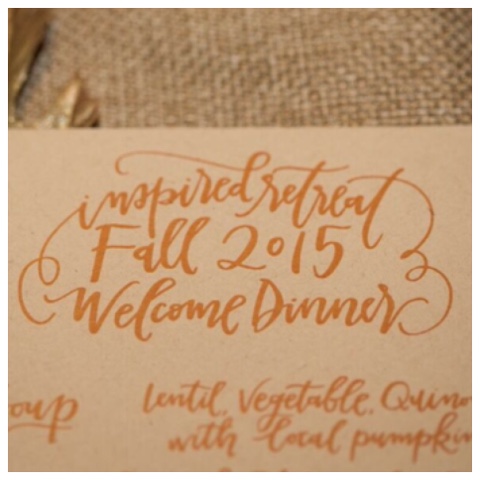 inspired retreat
Fall 2015
Welcome Dinner
Lentil, Vegetable, Quino
oup with local pumpkin